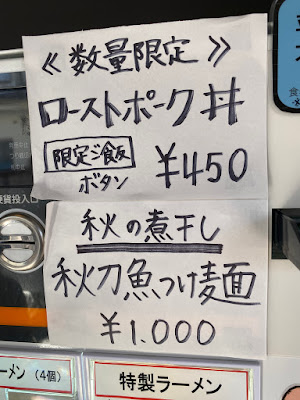 ≪数量限定≫
ローストポーク丼
限定ご飯
ボタン
¥450
貨投入口
秋の煮干し
秋刀魚つけ麺
¥1.000
ーメン (4個)
特製ラーメン